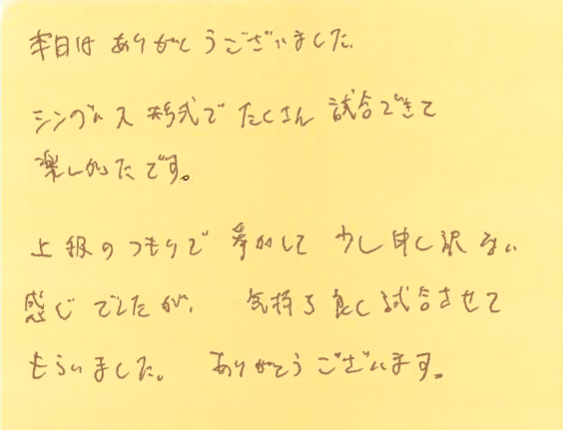 本日は ありがとうございました。
シングルス形式で たくさん 試合できて
楽しかったです。
上級のつもりで 参加して 少し申し訳ない
感じでしたが、 気持ち良く試合させて
もらいました。 ありがとうございます。